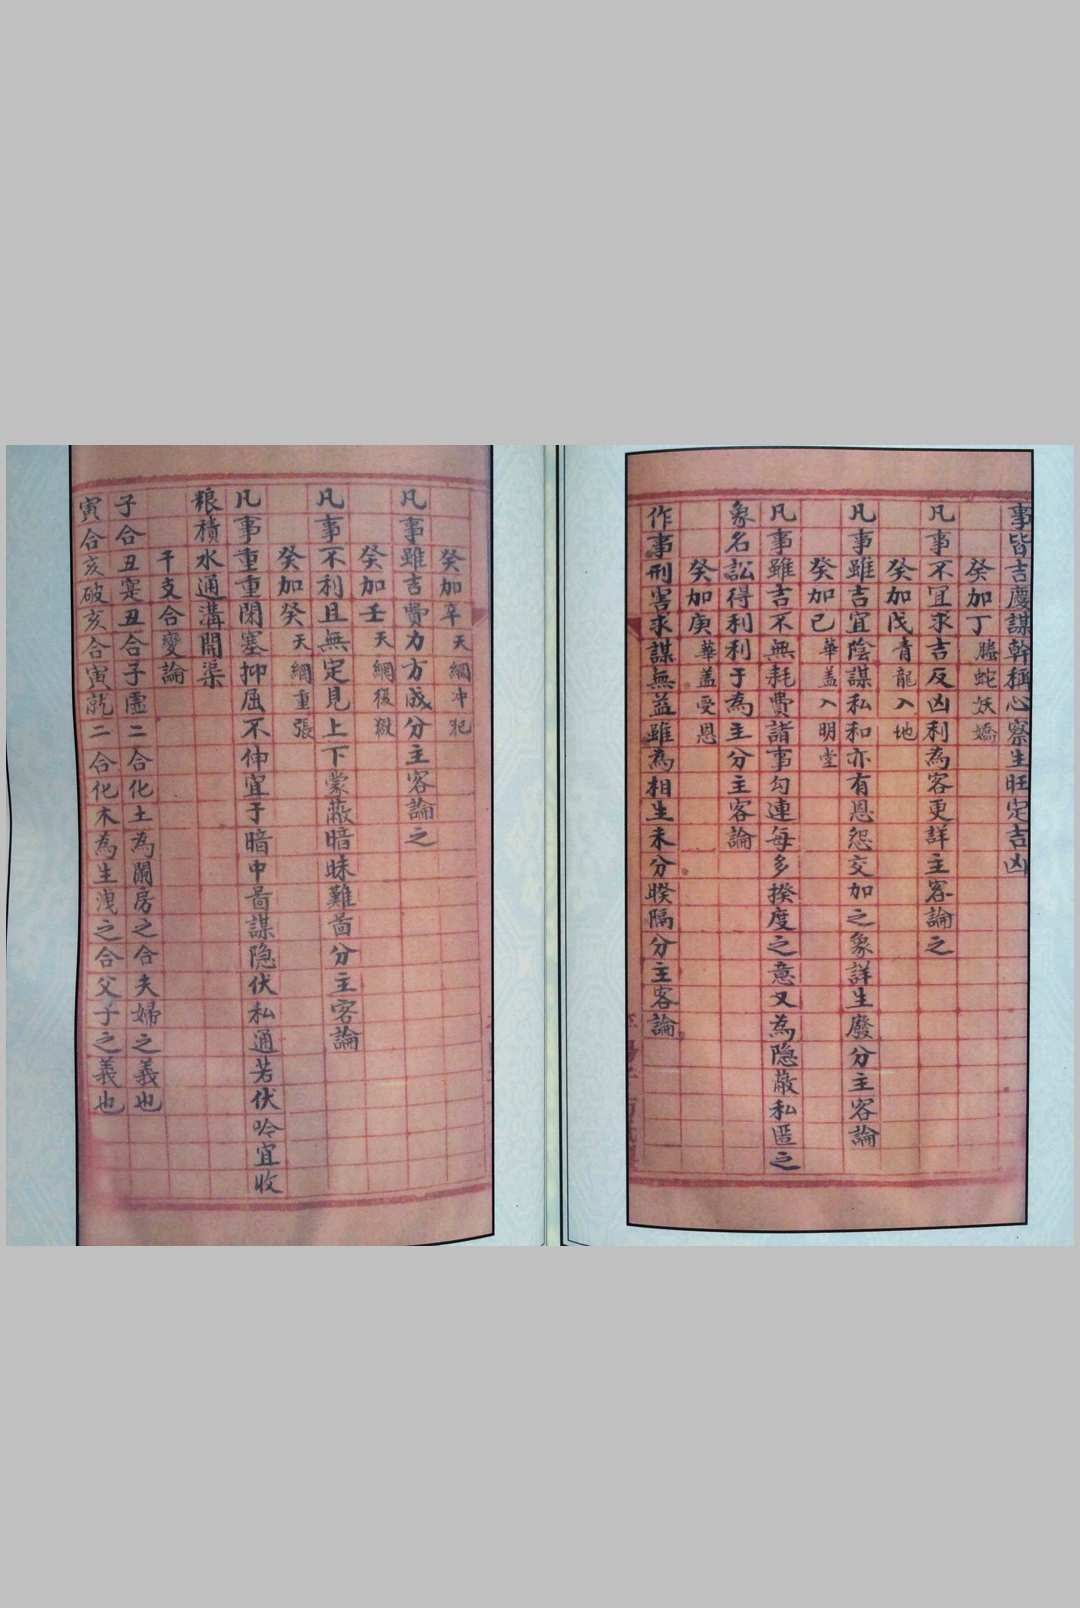 事皆吉慶謀幹稱心察生旺定吉凶
癸加丁 螣蛇妖嬌
凡事不宜求吉反凶利為客更詳主客論之
癸加戊 青龍入地
凡事雖吉宜陰謀私和亦有恩怨交加之象詳生廢分主客論
癸加己 華蓋入明堂
凡事雖吉不無耗費諸事勾連每多揆度之意又為隐蔽私匿之
象名訟得利利于為主分主客論
癸加庚 華蓋受恩
作事刑害求謀無益雖為相生未分暌隔分主客論
癸加辛 天網冲犯
凡事雖吉費力方成分主客論之
癸加壬 天網復獄
凡事不利且無定見上下蒙蔽暗昧難啚分主客論
癸加癸 天網重張
凡事重重閉塞抑屈不伸宜于暗中啚謀隐伏私通若伏吟宜收
粮積水通溝開渠
干支合變論
子合丑寔丑合子虛二合化土為閨房之合夫婦之義也
寅合亥破亥合寅就二合化木為生洩之合父子之義也